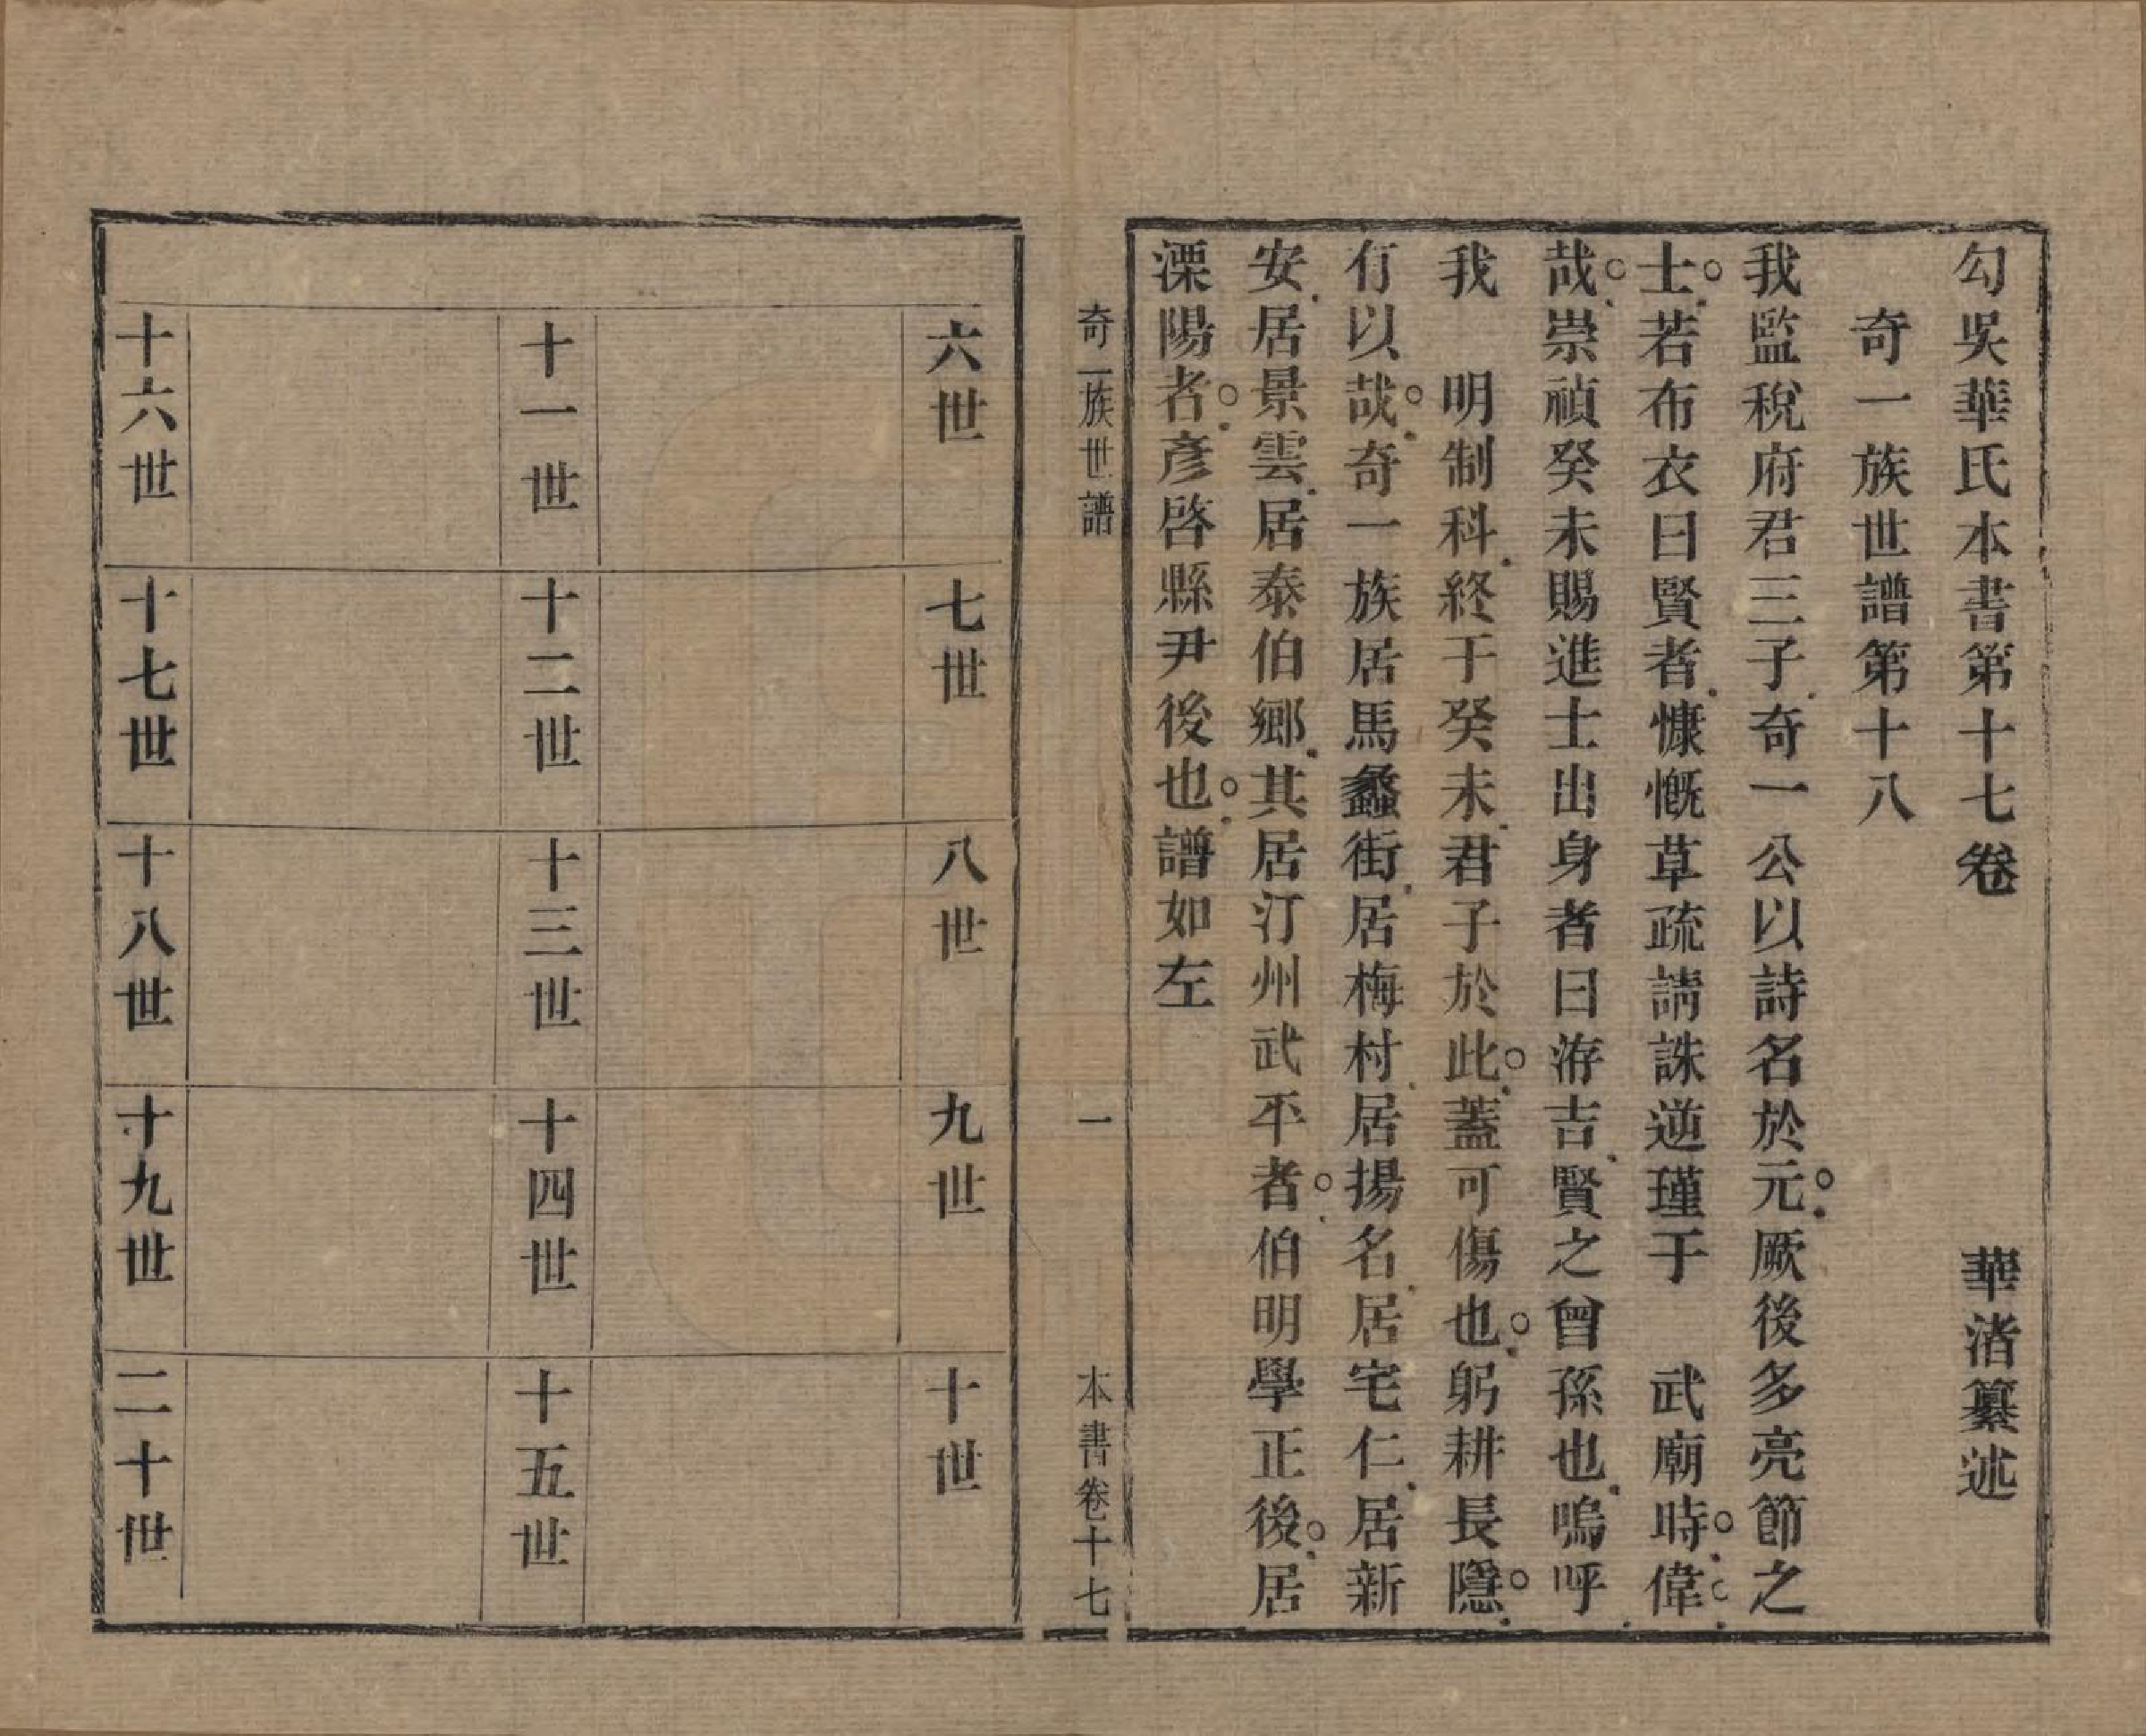 勾吳華氏本書第十七卷　華渚纂述
奇一族世譜第十八
我監稅府君三子奇一公以詩名於元厥後多亮節之
士若布衣曰賢者慷慨草疏請誅逆瑾于　武廟時偉
哉崇禎癸未賜進士出身者曰洊吉賢之曾孫也嗚呼
我　明制科終于癸未君子於此蓋可傷也躬耕長隱
有以哉奇一族居馬蠡街居梅村居揚名居宅仁居新
安居景雲居泰伯鄉其居汀州武平者伯明學正後居
溧陽者彥啓縣尹後也譜如左
奇一族世譜　一　本書卷十七
六世　七世　八世　九世　十世
十一世　十二世　十三世　十四世　十五世
十六世　十七世　十八世　十九世　二十世